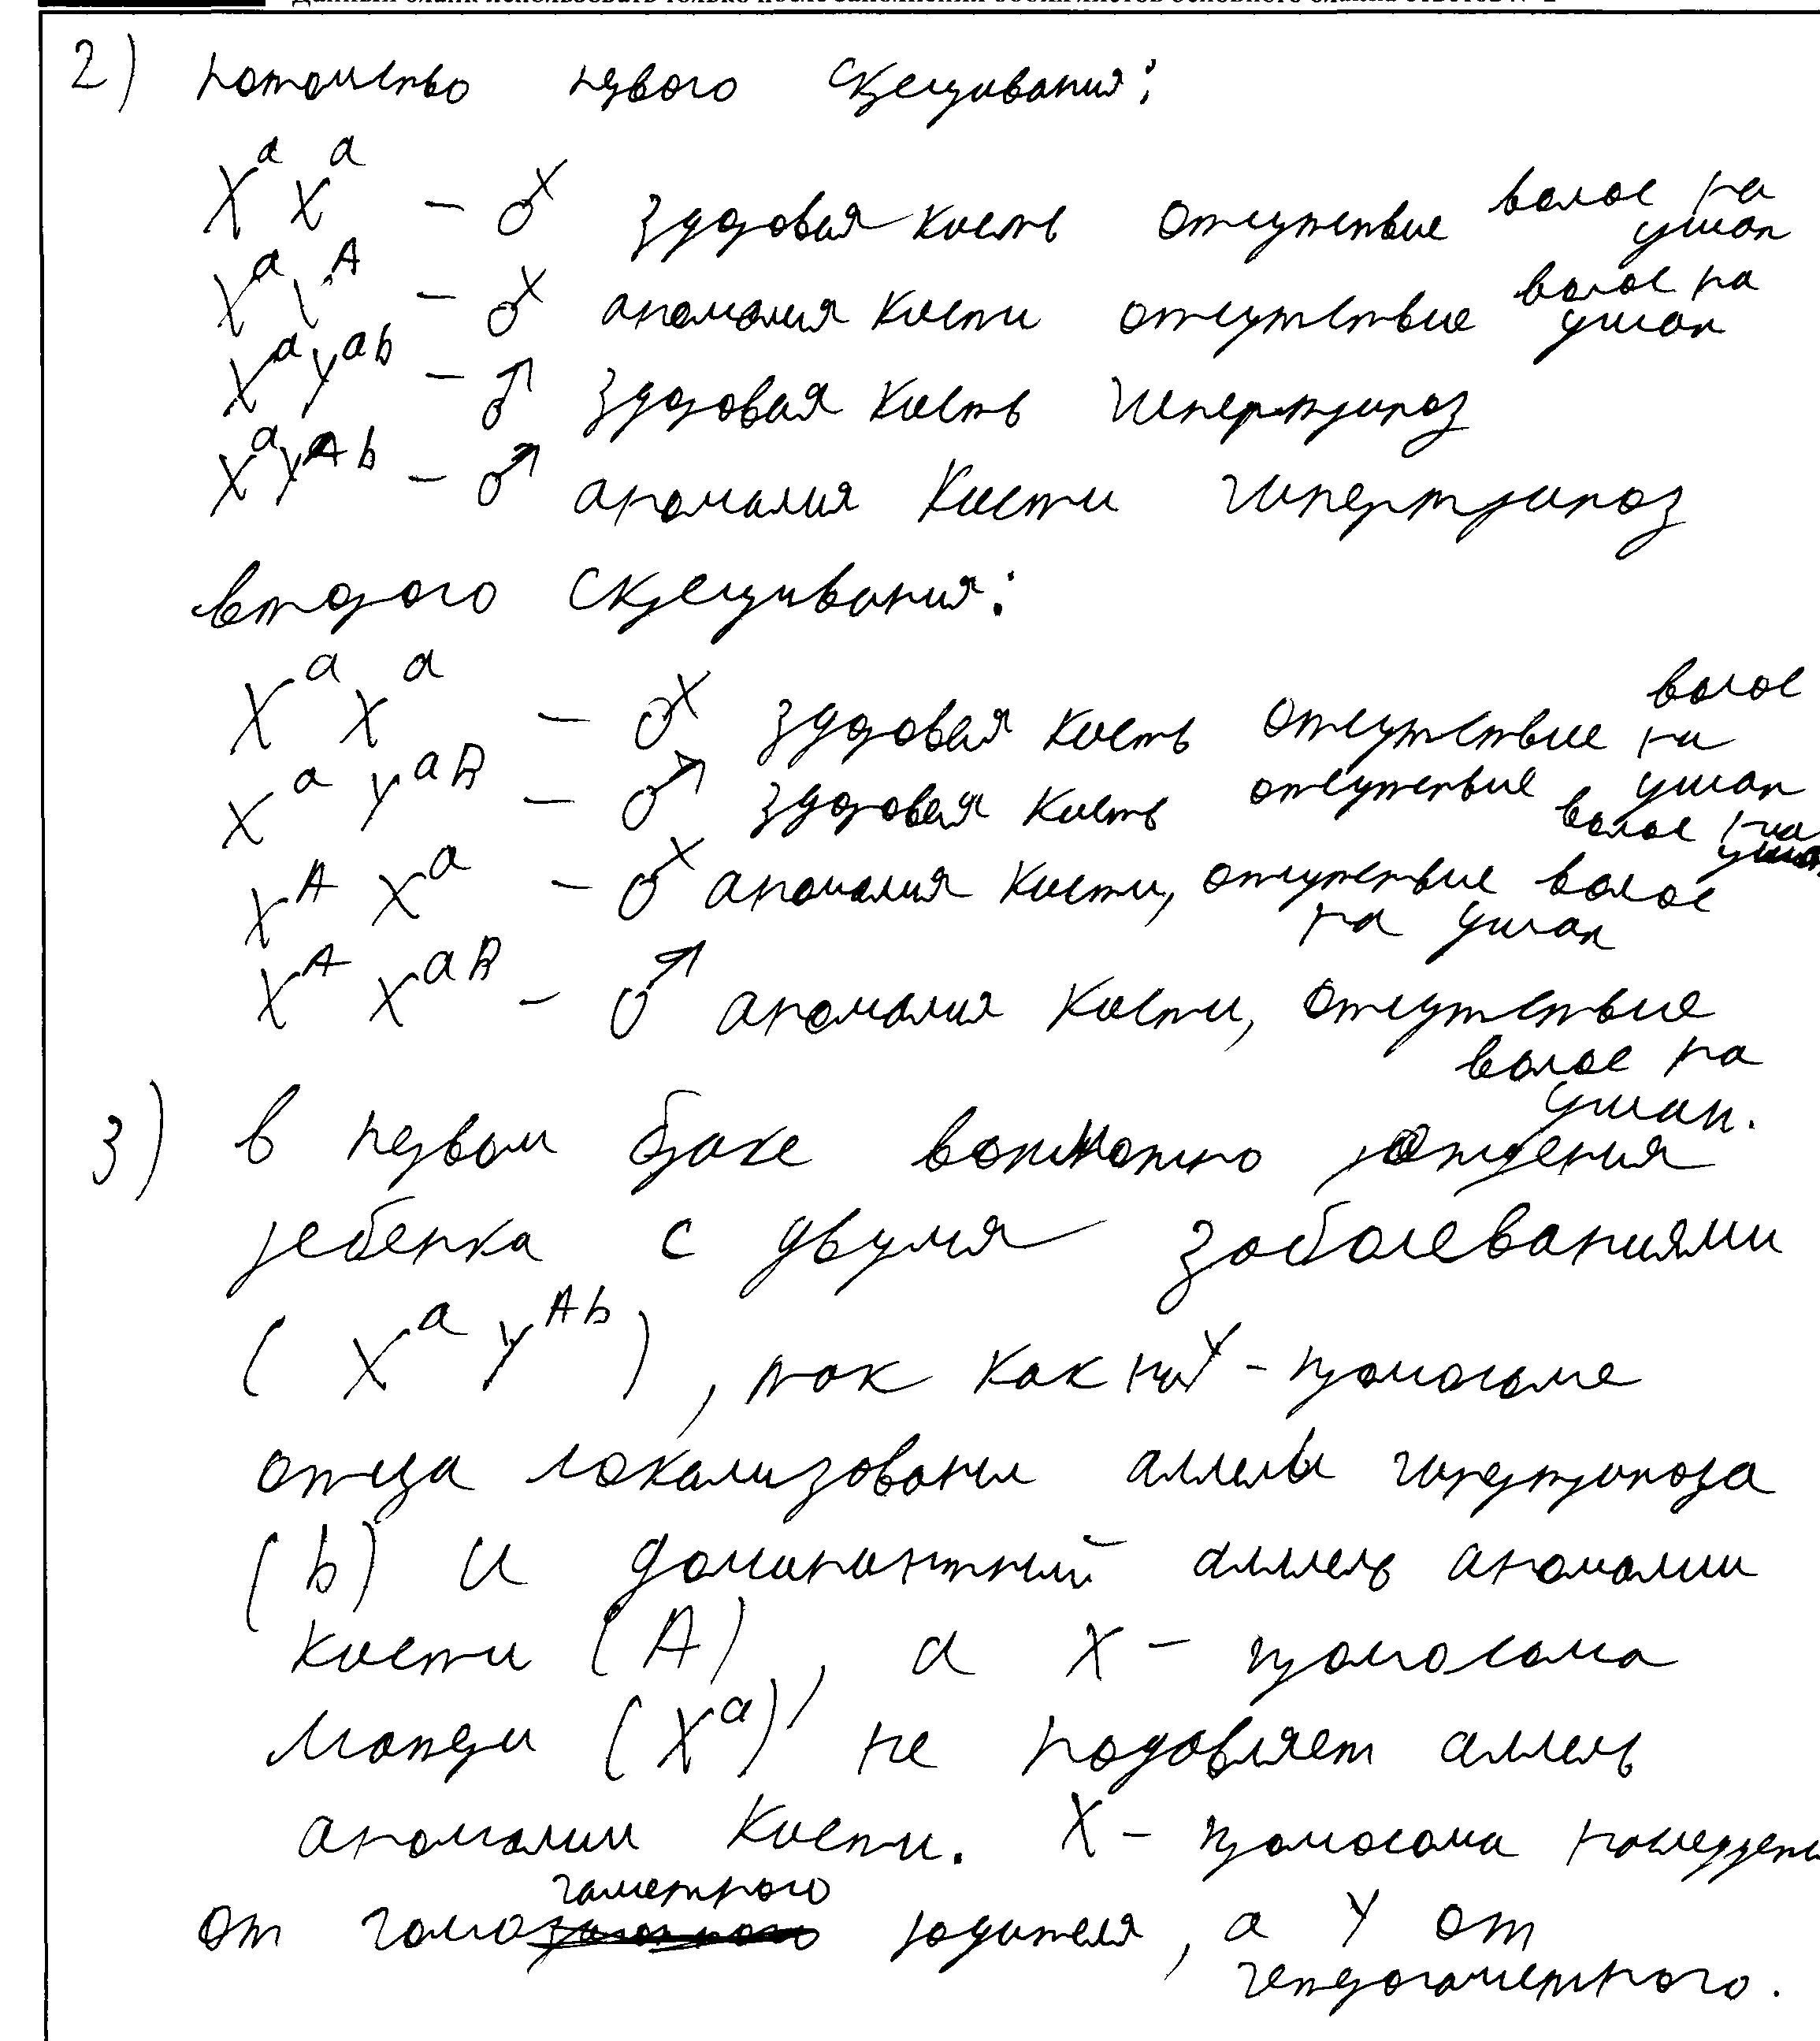 2) потомство первого скрещивания:
XᵃXᵃ – ♀ здоровая кость отсутствие волос на ушах
Xᵃ Xᴬ – ♀ аномалия кости отсутствие волос на ушах
XᵃYᵃᵇ – ♂ здоровая кость гипертрихоз
XᵃYᴬᵇ – ♂ аномалия кости гипертрихоз
второго скрещивания:
XᵃXᵃ – ♀ здоровая кость отсутствие волос на ушах
XᵃYᵃᴮ – ♂ здоровая кость отсутствие волос на ушах
XᴬXᵃ – ♀ аномалия кости, отсутствие волос на ушах
XᴬXᵃᴮ – ♂ аномалия кости, отсутствие волос на ушах.
3) в первом браке возможно рождения
ребенка с двумя заболеваниями
(XᵃYᴬᵇ), так как на Y-хромосоме
отца локализованы аллель гипертрихоза
(b) и доминантный аллель аномалии
кости (A), а X-хромосома
матери (Xᵃ) не подавляет аллель
аномалии кости. X-хромосома
от гомогаметного родителя, а Y от
гетерогаметного.